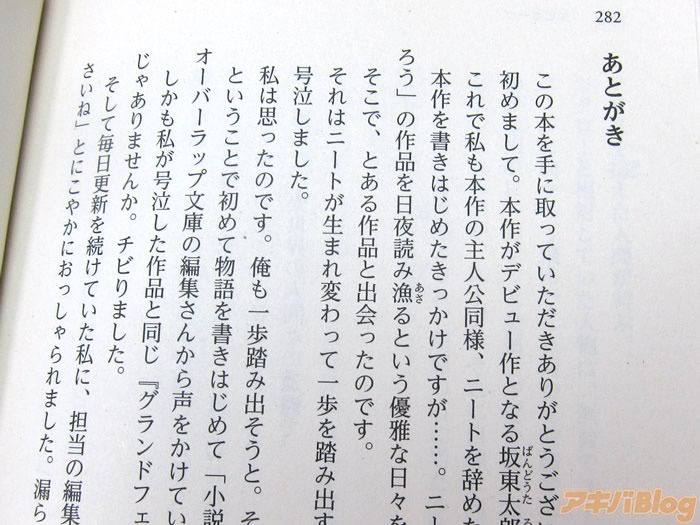 282
あとがき
この本を手に取っていただきありがとうござ
初めまして。本作がデビュー作となる坂東太郎
ばんどうたろ
これで私も本作の主人公同様、ニートを辞めた
本作を書きはじめたきっかけですが……。ニー
ろう」の作品を日夜読み漁るという優雅な日々を
あさ
そこで、とある作品と出会ったのです。
それはニートが生まれ変わって一歩を踏み出す
号泣しました。
私は思ったのです。俺も一歩踏み出そうと。そ
ということで初めて物語を書きはじめて「小説
オーバーラップ文庫の編集さんから声をかけてい
しかも私が号泣した作品と同じ『グランドフェ
じゃありませんか。チビりました。
そして毎日更新を続けていた私に、担当の編集
さいね」とにこやかにおっしゃられました。漏ら
アキバBlog